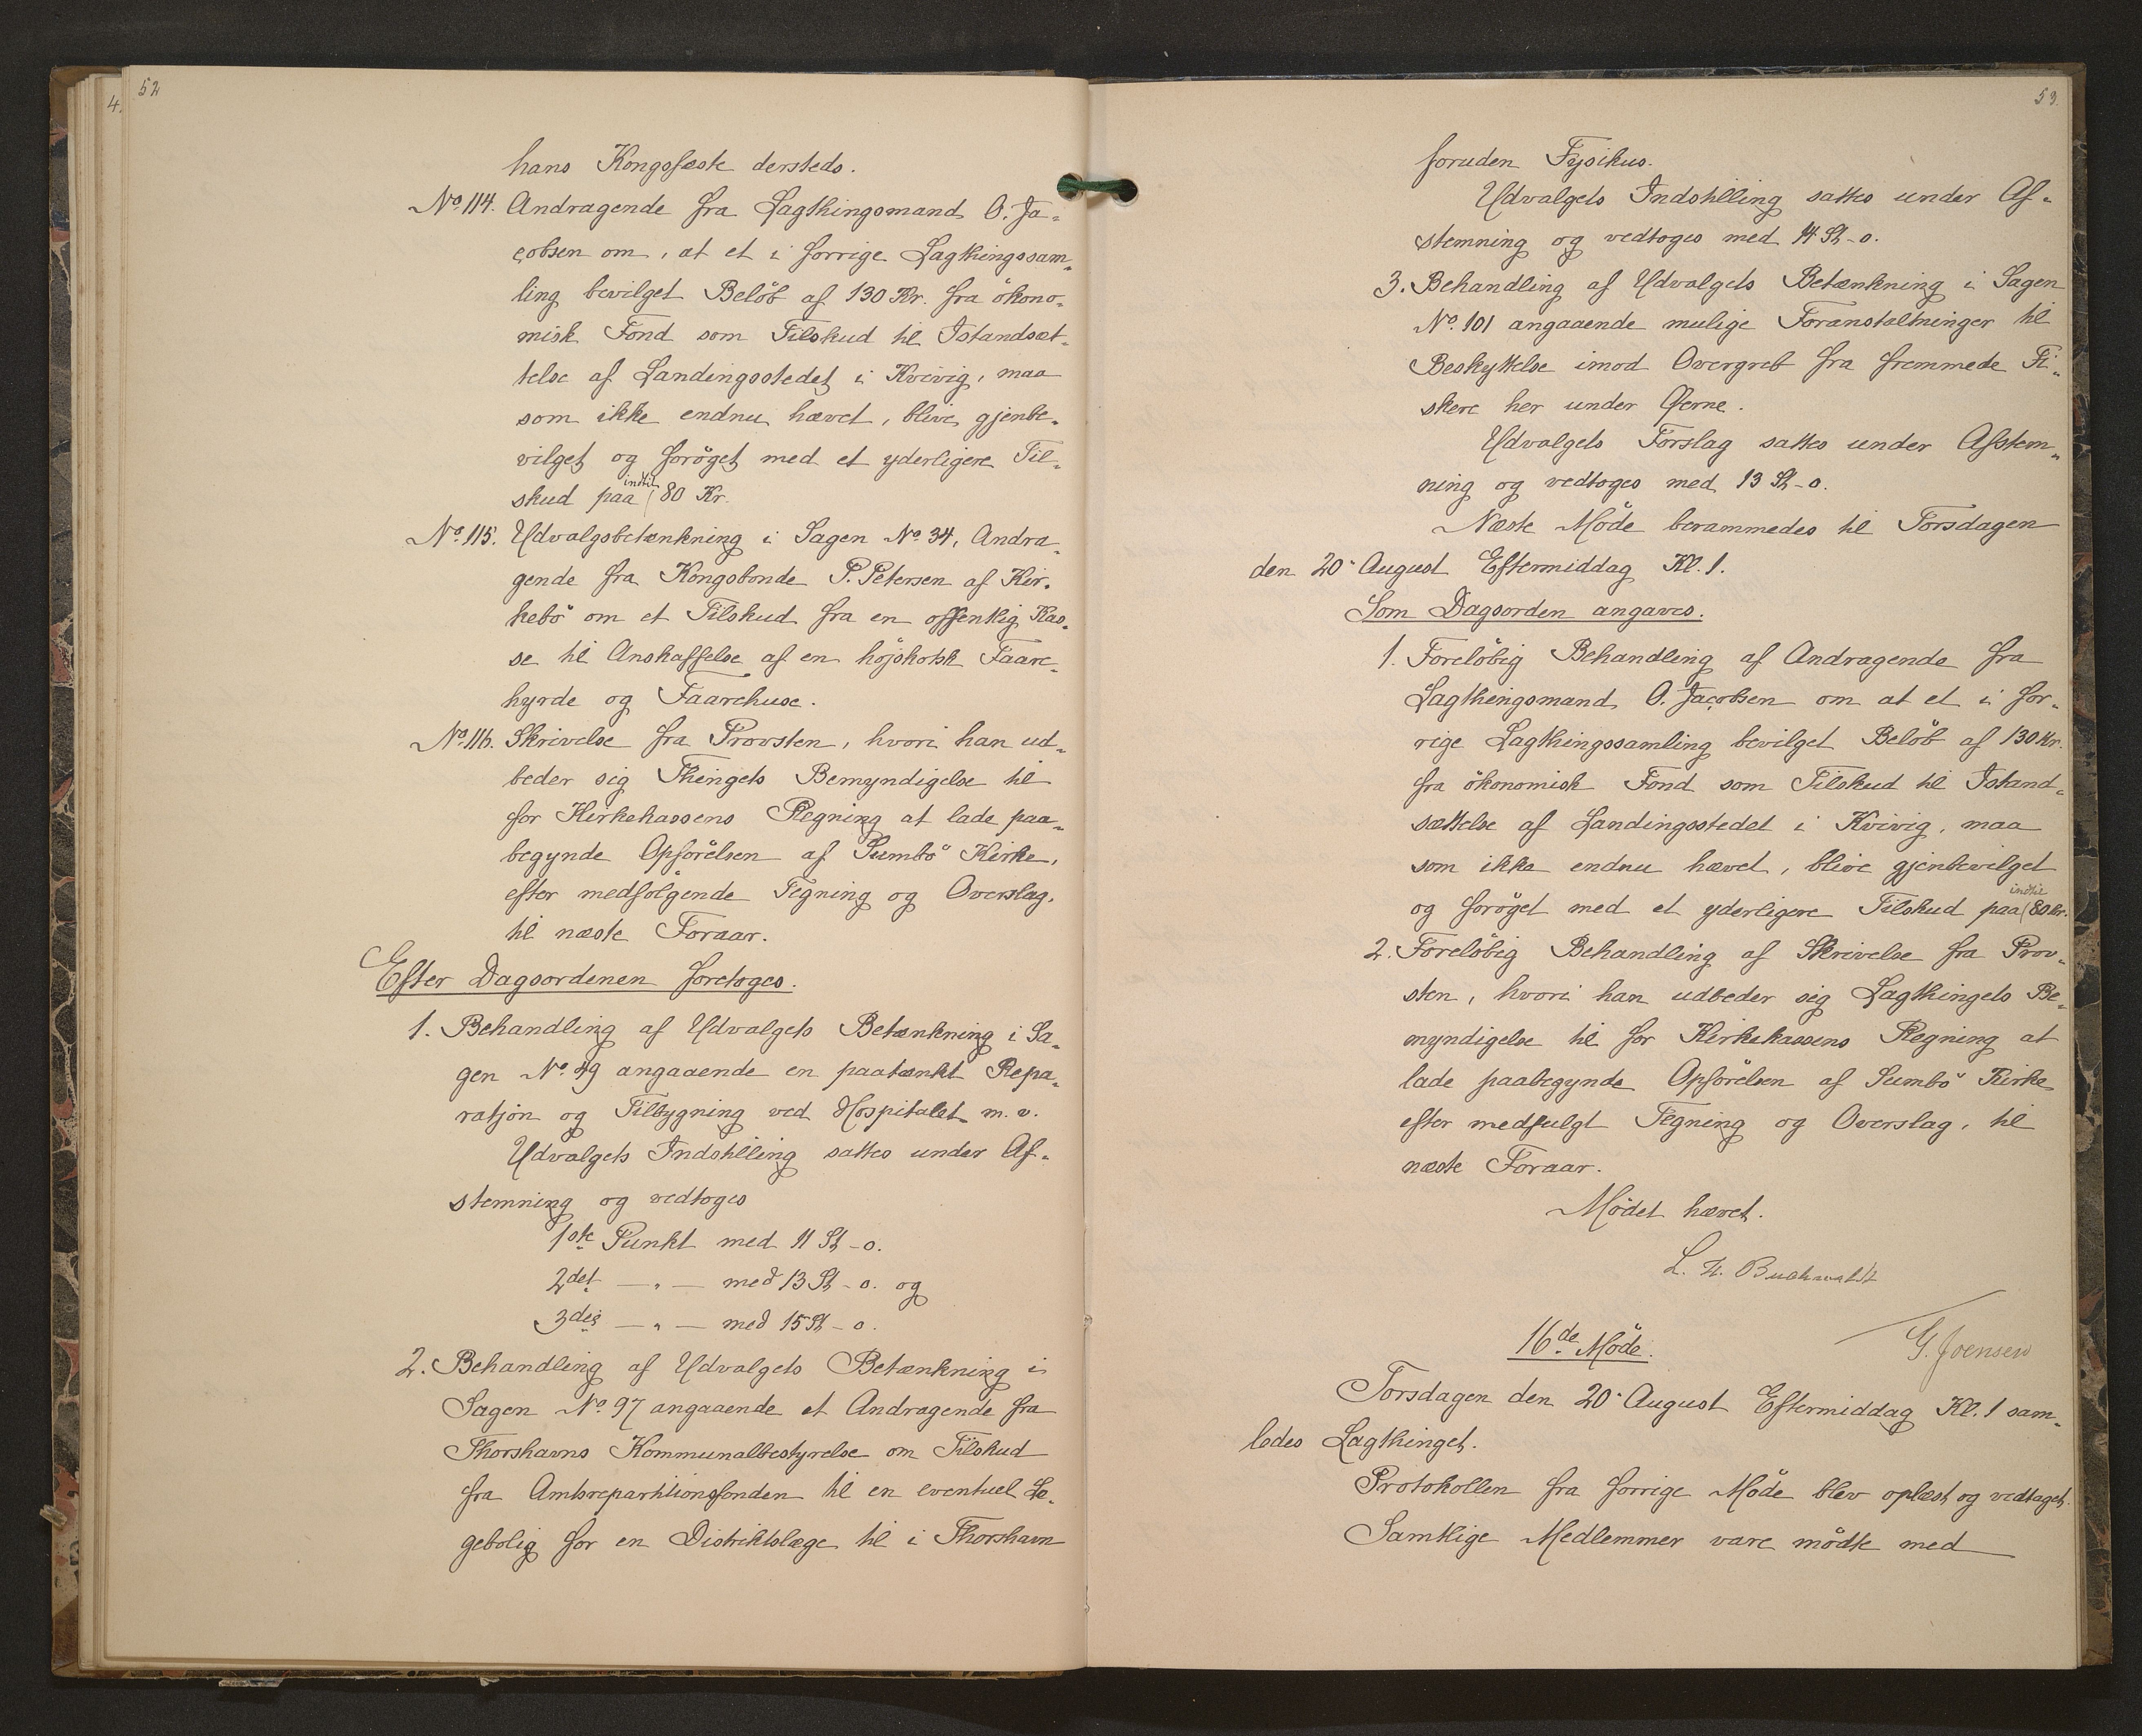 52
hans Kongsfæste dersteds.
No. 114. Andragende fra Lagthingsmand O. Ja-
cobsen om, at et i forrige Lagthingssam-
ling bevilget Beløb af 130 Kr. fra økono-
misk Fond som Tilskud til Istandsæt-
telse af Landingsstedet i Kvivig, maa
som ikke endnu hævet, blive gjenbe-
vilget og forøget med et yderligere Til-
skud paa indtil 80 Kr.
No. 115. Udvalgsbetænkning i Sagen No. 34, Andra-
gende fra Kongsbonde P. Petersen af Kir-
kebø om et Tilskud fra en offentlig Kas-
se til Anskaffelse af en højskotsk Faare-
hyrde og Faarehuse.
No. 116. Skrivelse fra Provsten, hvori han ud-
beder sig Thingets Bemyndigelse til
for Kirkekassens Regning at lade paa-
begynde Opførelsen af Sumbø Kirke,
efter medfølgende Tegning og Overslag,
til næste Foraar.
Efter Dagsordenen foretoges.
1. Behandling af Udvalgets Betænkning i Sa-
gen No. 49 angaaende en paatænkt Repa-
ratjon og Tilbygning ved Hospitalet m. v.
Udvalgets Indstilling sattes under Af-
stemning og vedtoges
1ste Punkt med 11 St - 0.
2det — " — med 13 St - 0. og
3die — " — med 15 St - 0.
2. Behandling af Udvalgets Betænkning i
Sagen No. 97 angaaende et Andragende fra
Thorshavns Kommunalbestyrelse om Tilskud
fra Amtsrepartitionsfonden til en eventuel Læ-
gebolig for en Distriktslæge til i Thorshavn
53.
foruden Fysikus.
Udvalgets Indstilling sattes under Af-
stemning og vedtoges med 14 St - 0.
3. Behandling af Udvalgets Betænkning i Sagen
No. 101 angaaende mulige Foranstaltninger til
Beskyttelse imod Overgreb fra fremmede Fi-
skere her under Øerne.
Udvalgets Forslag sattes under Afstem-
ning og vedtoges med 13 St - 0.
Næste Møde berammedes til Torsdagen
den 20. August Eftermiddag Kl. 1.
Som Dagsorden angaves.
1. Foreløbig Behandling af Andragende fra
Lagthingsmand O. Jacobsen om at et i for-
rige Lagthingssamling bevilget Beløb af 130 Kr.
fra økonomisk Fond som Tilskud til Istand-
sættelse af Landingsstedet i Kvivig, maa
som ikke endnu hævet, blive gjenbevilget
og forøget med et yderligere Tilskud paa indtil 80 Kr.
2. Foreløbig Behandling af Skrivelse fra Prov-
sten, hvori han udbeder sig Lagthingets Be-
myndigelse til for Kirkekassens Regning at
lade paabegynde Opførelsen af Sumbø Kirke
efter medfulgt Tegning og Overslag, til
næste Foraar.
Mødet hævet.
L. F. Buchwaldt
G. Joensen
16de Møde.
Torsdagen den 20. August Eftermiddag Kl. 1 sam-
ledes Lagthinget.
Protokollen fra forrige Møde blev oplæst og vedtaget.
Samtlige Medlemmer vare mødte med